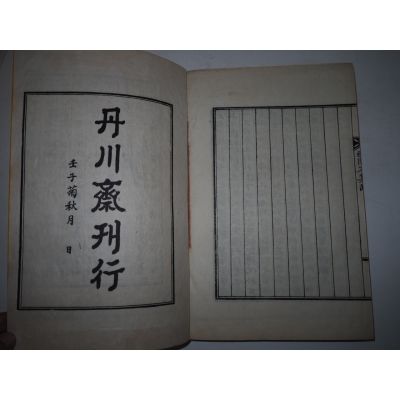 丹川齋刊行
壬子菊秋月　日